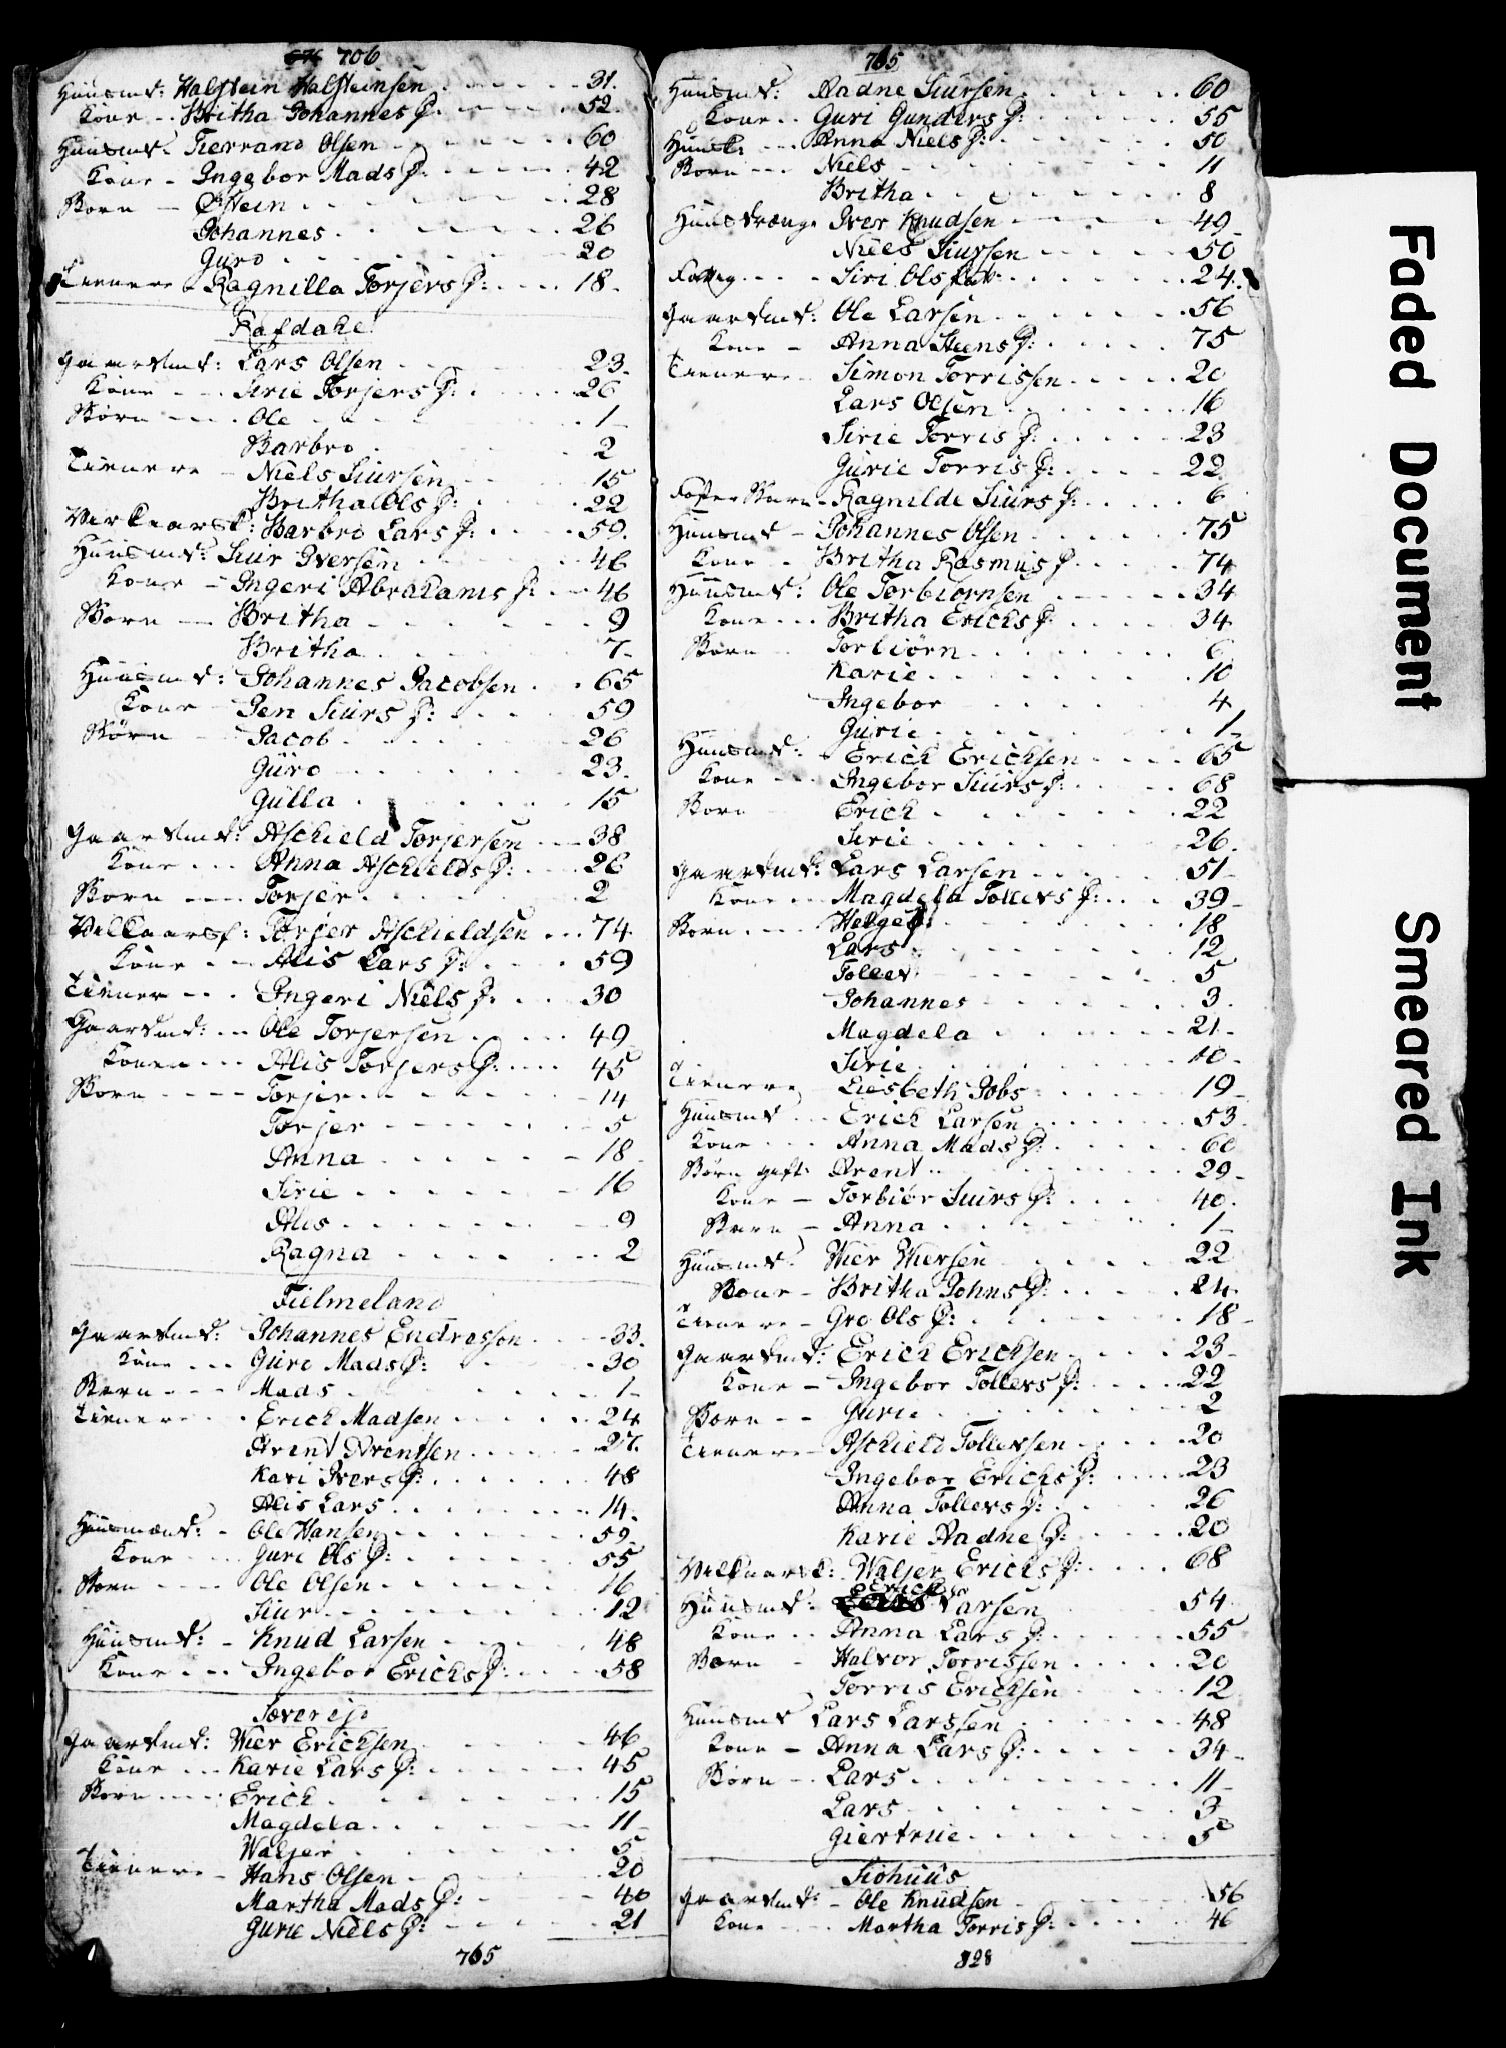 706
Huusmd: Halstein Halsteinsen 31.
Kone Britha Johannes D: 52.
Huusmd. Tierrand Olsen 60
Kone - Ingebor Mads D: 42
Born Østein 28
Johannes 26
Guro 20
Tienere Ragnilla Torjers D: 18.
Rafdahl
Gaardmd: Lars Olsen 23.
Kone Sirie Torjers D: 26
Børn Ole 1
Barbro 2
Tienere Niels Siursen 15
Britha Ols D: 22
Barbro Lars D: 59.
Huusmd: Siur Iversen 46
Kone - Ingeri Abrahams D: 46
Børn Britha 9
Britha 7
Huusmd: Johannes Jacobsen 65
Kone Jen Siurs D: 59
Børn Jacob 26
Guro 23.
Gulla 15
Gaardmd: Aschield Torjersen 38
Kone Anna Aschields D: 26
Born Torjer 2
Torjer Aschieldsen 74
Kone Alis Lars D: 59
Tiener Ingeri Niels D: 30
Gaardmd: Ole Torjersen 49
Konen Alis Torjers D: 45
Born Torjer 14
Torjer 5
Anna 18
Sirie 16
Alis 9
Ragna 2
Fielmeland
Gaardmd: Johannes Endressen 33.
Kone Guro Mads D: 30
Børn Mads 1
Tienere Erich Madsen 24
Arent Arentsen 27.
Kari Ivers D: 48
Alis Lars 14.
Huusmand: Ole Hansen 59.
Kone Guri Ols D: 55
Børn Ole Olsen 16
Siur 12
Huusmd: - Knud Larsen 48
Kone Ingebor Erichs D: 58
Gaardmd: Wier Erichsen 46
Kone Karie Lars D: 45
Børn Erich 15
Magdela 11
Waljer 5
Tienere Hans Olsen 20
Martha Mads D: 40
Gurie Niels D: 21
765
765
Huusmd: Aadne Siursen 60
Kone Guri Gunders D: 55
Anna Niels D: 50
Børn Niels 11
Britha 8
Iver Knudsen 49
Niels Siursen 50
Siri Ols 24.
Gaardmd: Ole Larsen 56
Kone Anna Stens D: 75
Tienere Simon Torrissen 20
Lars Olsen 16
Sirie Torris D: 23
Gurie Torris D: 22
Foster Barn - Ragnilde Siurs D: 6
Huusmd - Johannes Olsen 75
Kone Britha Rasmus D 74
Huusmd: Ole Torbiørnsen 34
Kone Britha Erichs D: 34
Børn Torbiørn 6
Karie 10
Ingebor 4
Gurie 1
Huusmd: Erich Erichsen 65
Kone Ingebor Siurs D: 68
Børn Erich 22
Sirie 26.
Gaardmd: Lars Larsen 51
Kone Magdela Tollevs D: 39
Børn Helge 18
Lars 12
Tollev 5
Johannes 3.
Magdela 21
Sirie 10
Tienere Liesbeth Jobs 19
Huusmd Erich Larsen 53
Kone Anna Mads D: 60
Børn gift: Arent 29
Kone - Torbiør Siurs D: 40.
Barn - Anna 1
Huusmd: Wier Wiersen 22
Kone - Britha Johns D: 24
Tienere - Gro Ols D: 18
Gaardmd: Erich Erichsen 23
Kone - Ingebor Tollevs D: 22
Børn Gurie 2
Tienere - Aschield Tollevsen 20
Ingebor Erichs D: 23
Anna Tollevs D: 26
Karie Aadne D: 20
Waljer Erichs D: 68
Huusmd: Erich Larsen 54
Kone Anna Lars D: 55
Børn - Halvor Torrissen 20
Torris Erichsen 12
Huusmd Lars Larssen 48
Kone - Anna Lars D: 34
Børn Lars 11
Lars 3
Giertrue 5
Siohuus
Gaardmd: - Ole Knudsen 56
Kone Martha Torris D: 46
828
Faded Document
Smeared Ink